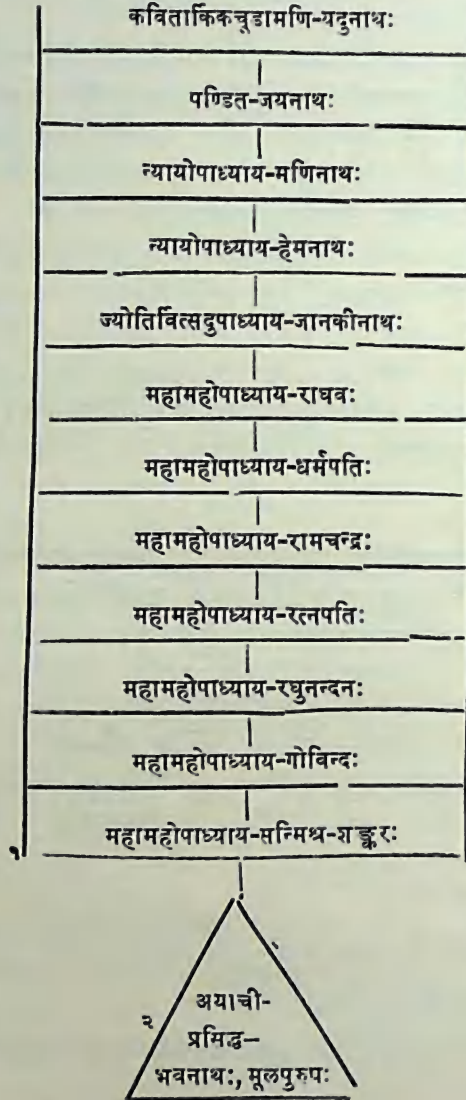 कवितार्किकचूडामणि-यदुनाथः
पण्डित-जयनाथः
न्यायोपाध्याय-मणिनाथः
न्यायोपाध्याय-हेमनाथः
ज्योतिर्वित्सदुपाध्याय-जानकीनाथः
महामहोपाध्याय-राघवः
महामहोपाध्याय-धर्मपतिः
महामहोपाध्याय-रामचन्द्रः
महामहोपाध्याय-रत्नपतिः
महामहोपाध्याय-रघुनन्दनः
महामहोपाध्याय-गोविन्दः
महामहोपाध्याय-सन्मिश्र-शङ्करः
१
२
अयाची-
प्रसिद्ध–
भवनाथः, मूलपुरुषः